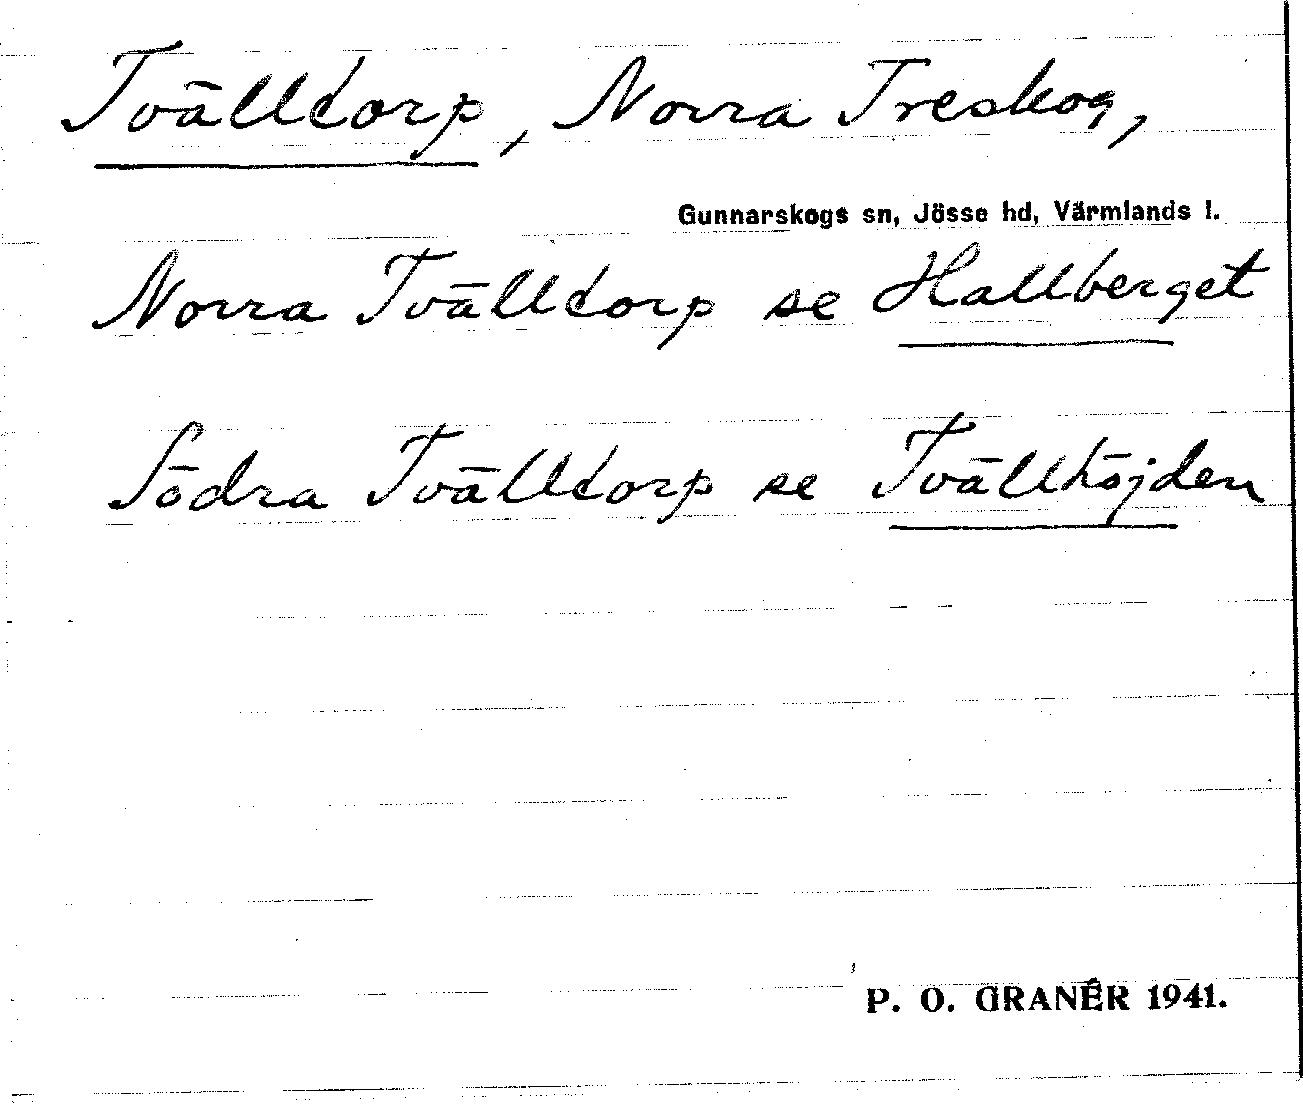 Tvälltorp, Norra Treskog,
Gunnarskogs sn, Jösse hd, Värmlands l.
Norra Tvälltorp se Hallberget
Södra Tvälltorp se Tvällhöjden
P. O. GRANÉR 1941.